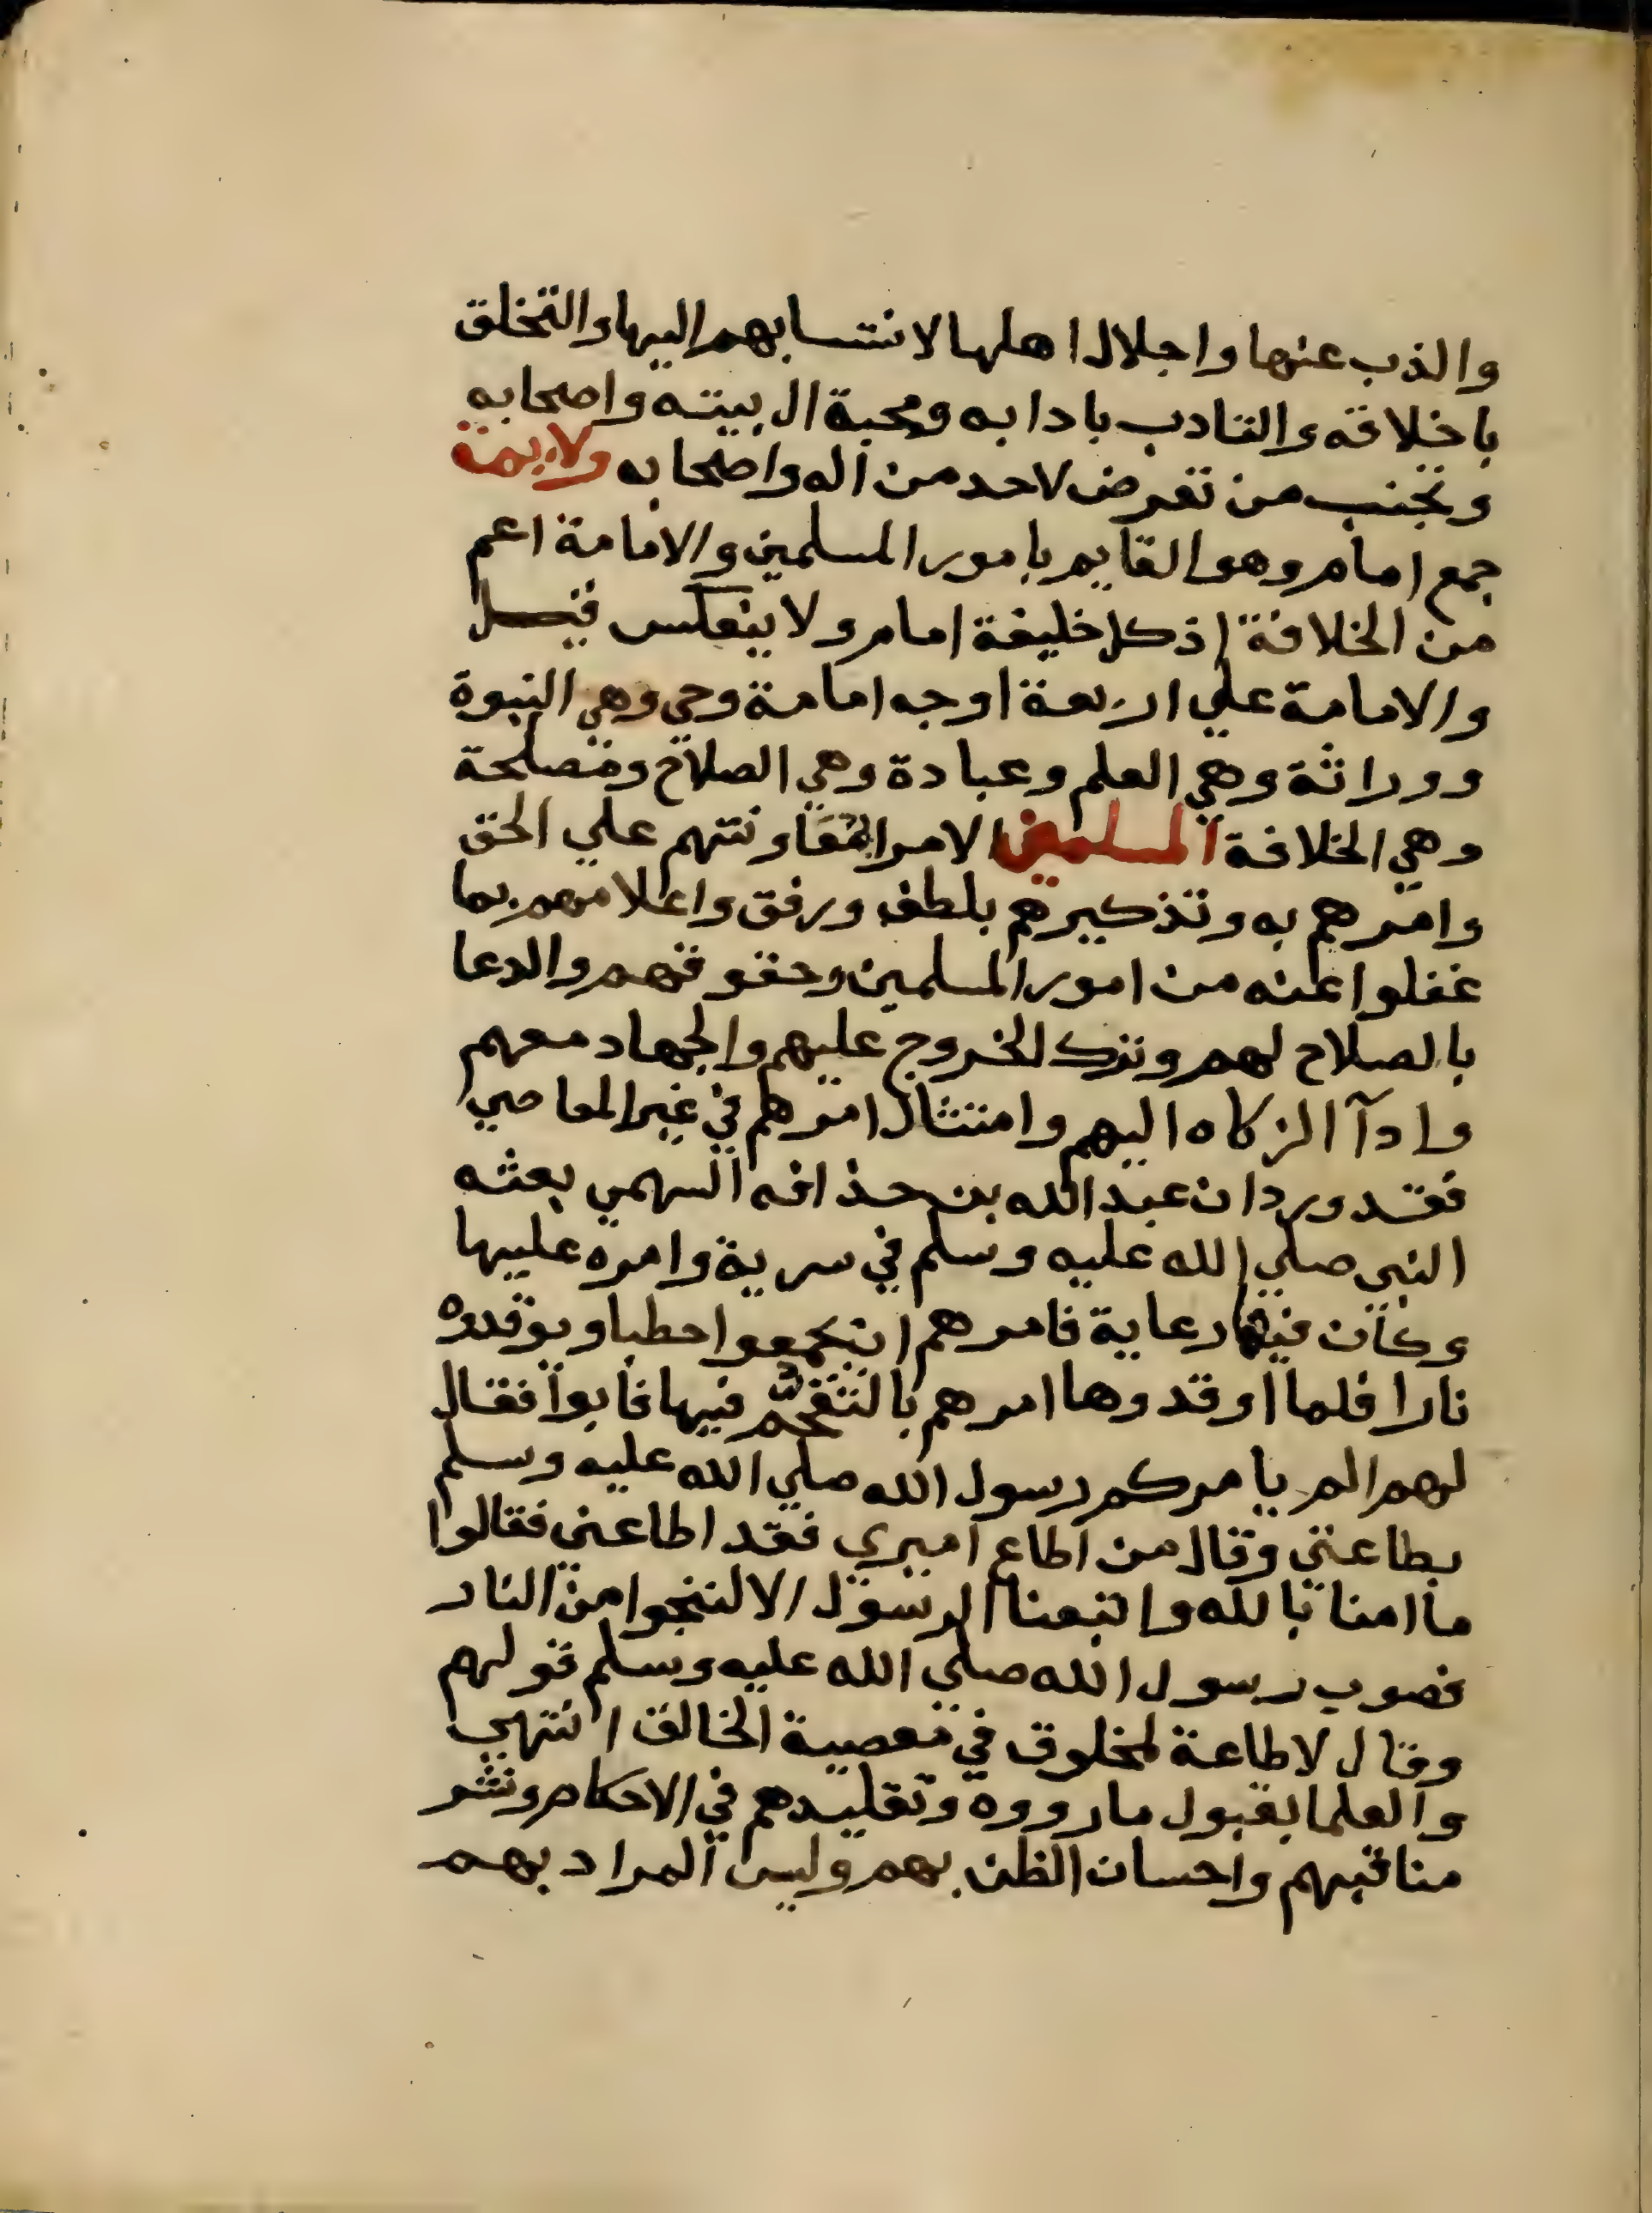 والذب عنها واجلال اهلها لانتسابهم اليها والتخلق
باخلاقه والتادب بادابه ومحبة ال بيته واصحابه
وتجنب من تعرض لاحد من اله واصحابه ولايمة
جمع امام وهو القايم بامور المسلمين والامامة اعم
من الخلافة اذ كل خليفة امام ولا ينعكس
والامامة علي اربعة اوجه امامة وحي وهي النبوة
ووراثة وهي العلم وعبادة وهي الصلاح ومصلحة
وهي الخلافة المسلمين الامرا بمعاونتهم علي الحق
وامرهم به وتذكيرهم بلطف ورفق واعلامهم بما
غفلوا عنه من امور المسلمين وحقوقهم والدعا
بالصلاح لهم وترك الخروج عليهم والجهاد معهم
وادآ الزكاه اليهم وامتثال امرهم في غير المعاصي
فقد ورد ان عبد الله بن حذافه السهمي بعثه
النبي صلي الله عليه وسلم في سرية وامره عليها
وكان فيه دعابة فامرهم ان يجمعوا حطبا ويوقدوه
نارا فلما اوقدوها امرهم بالتقحم فيها فابوا فقال
لهم الم يامركم رسول الله صلي الله عليه وسلم
بطاعتي وقال من اطاع اميري فقد اطاعني فقالوا
ما امنا بالله واتبعنا الرسول الا لننجوا من النار
فصوب رسول الله صلي الله عليه وسلم قولهم
وقال لا طاعة لمخلوق في معصية الخالق انتهي
والعلما بقبول ما رووه وتقليدهم في الاحكام ونشر
مناقبهم واحسان الظن بهم وليس المراد بهم